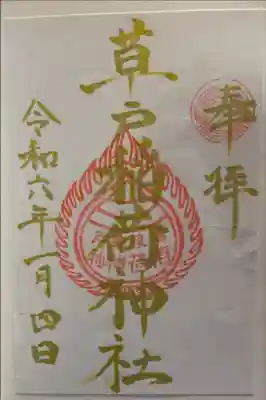 奉拝
草戸稲荷神社
令和六年一月四日